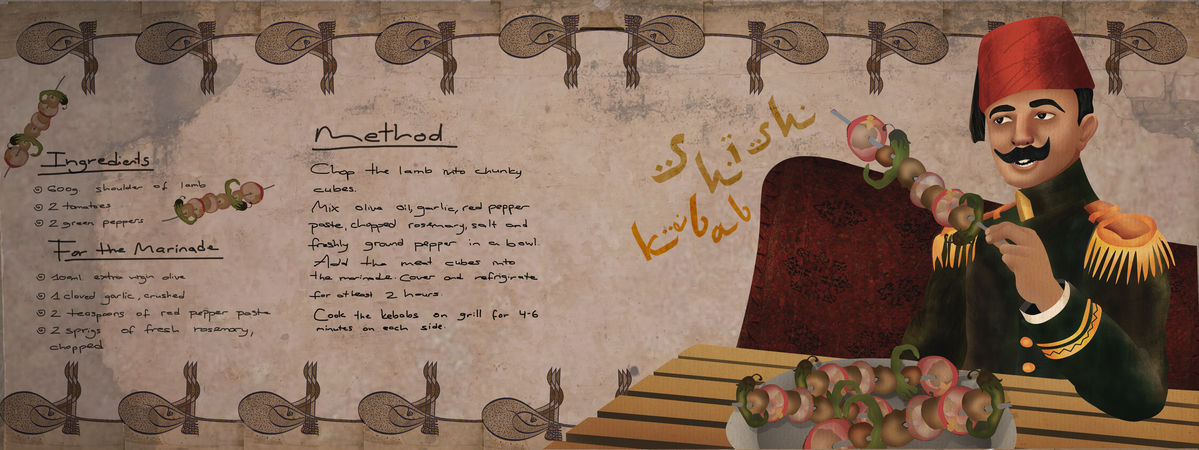 Ingredients
600g shoulder of lamb
2 tomatoes
2 green peppers
For the Marinade
100ml extra virgin olive
1 cloved garlic, crushed
2 teaspoons of red pepper paste
2 sprigs of fresh rosemary,
chopped
Method
Chop the lamb into chunky
cubes.
Mix olive oil, garlic, red pepper
paste, chopped rosemary, salt and
freshly ground pepper in a bowl.
Add the meat cubes into
the marinade. Cover and refrigirate
for atleast 2 hours.
Cook the kebabs on grill for 4-6
minutes on each side.
Shish
kebab